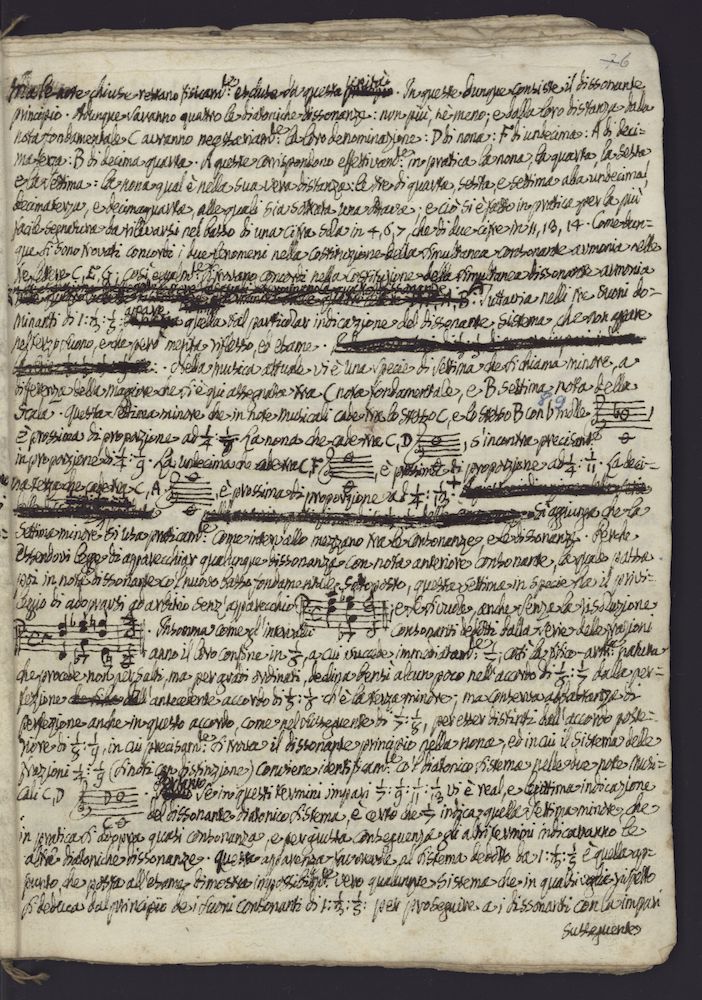 76
ma le note chiuse restano fisicam.te escluse da questa serie. In queste dunque consiste il dissonante
principio. Adunque saranno quattro le diatoniche dissonanze: non più, nè meno; e dalla loro distanza dalla
nota fondamentale C avranno necessariam.te la loro denominazione: D di nona: F di undecima: A di deci-
materza: B di decimaquarta. A queste corrispondono effettivam.te in pratica la nona, la quarta, la sesta
e la settima: la nona qual è nella sua vera distanza: le tre di quarta, sesta e settima alla undecima,
decimaterza, e decimaquarta, alle quali sia sottratta una ottava: e ciò si è fatto in pratica per la più
facile segnatura da rilevarsi nel basso di una cifra sola in 4, 6, 7, che di due cifre in 11, 13, 14. Come dun-
que si sono trovati concordi i due fenomeni nella costituzione della simultanea consonante armonia nelle
tre lettere C, E, G; così egualm.te si trovano concordi nella costituzione della simultanea dissonante armonia
A, B. Tuttavia nelli tre suoni do-
minanti di 1: 1/3: 1/5: appare quella tal particolar indicazione del dissonante sistema, che non appare
nel terzo suono, e che però merita riflesso, ed esame.
Nella musica attuale vi è una specie di settima che si chiama minore, a
differenza della maggiore che si è qui assegnata tra C nota fondamentale, e B settima nota della
scala. Questa settima minore che in note musicali cade tra lo stesso C, e lo stesso B con b molle
89
è prossima di proporzione ad 1/4: 1/7. La nona che cade tra C, D, s'incontra precisam.te
in proporzione di 1/4: 1/9. La undecima che cade tra C, F, è prossima di proporzione ad 1/4: 1/11. La deci-
materza che cade tra C, A, è prossima di proporzione ad 1/4: 1/13
Si aggiunga che la
settima minore si usa praticam.te come intervallo mezzano tra le consonanze, e le dissonanze. Perchè
essendovi legge di apparecchiar qualunque dissonanza con nota anteriore consonante, la quale passa
poi in nota dissonante col nuovo basso fondamentale sottoposto, questa settima in specie ha il privi-
legio di adoprarsi ad arbitrio senz'apparecchio
e se si vuole, anche senza la risoluzione
Insomma come gl'intervalli consonanti dedotti dalla serie delle ragioni
anno il loro confine in 1/6, a cui succede immediatam.te 1/7; così la fisico-armonica natura
che procede non per salti, ma per gradi ordinari, declina bensì alcun poco nell'accordo di 1/6: 1/7 dalla per-
fezione dell'antecedente accordo di 1/5: 1/6 ch'è la terza minore; ma conserva abbastanza di
perfezione anche in questo accordo, come nel susseguente di 1/7: 1/8, per esser distinti dall'accordo poste-
riore di 1/8: 1/9, in cui precisam.te si trova il dissonante principio nella nona, ed in cui il sistema delle
frazioni 1/8: 1/9 (si noti con distinzione) conviene identificam.te col diatonico sistema nelle due note musi-
cali C, D
Pertanto
se in questi termini impari 1/7: 1/9: 1/11: 1/13 vi è real, e legittima indicazione
del dissonante diatonico sistema, è certo che 1/7 indica quella settima minore, che
in pratica si adopra quasi consonanza, e per giusta conseguenza gli altri termini indicaranno le
altre diatoniche dissonanze. Questa apparenza favorevole al sistema dedotto da 1: 1/3: 1/5 è quella ap-
punto che posta all'esame dimostra impossibilm.te vero qualunque sistema che in qualsivoglia rispetto
si deduca dal principio de i suoni consonanti di 1: 1/3: 1/5: per proseguire a i dissonanti con la impari
susseguente